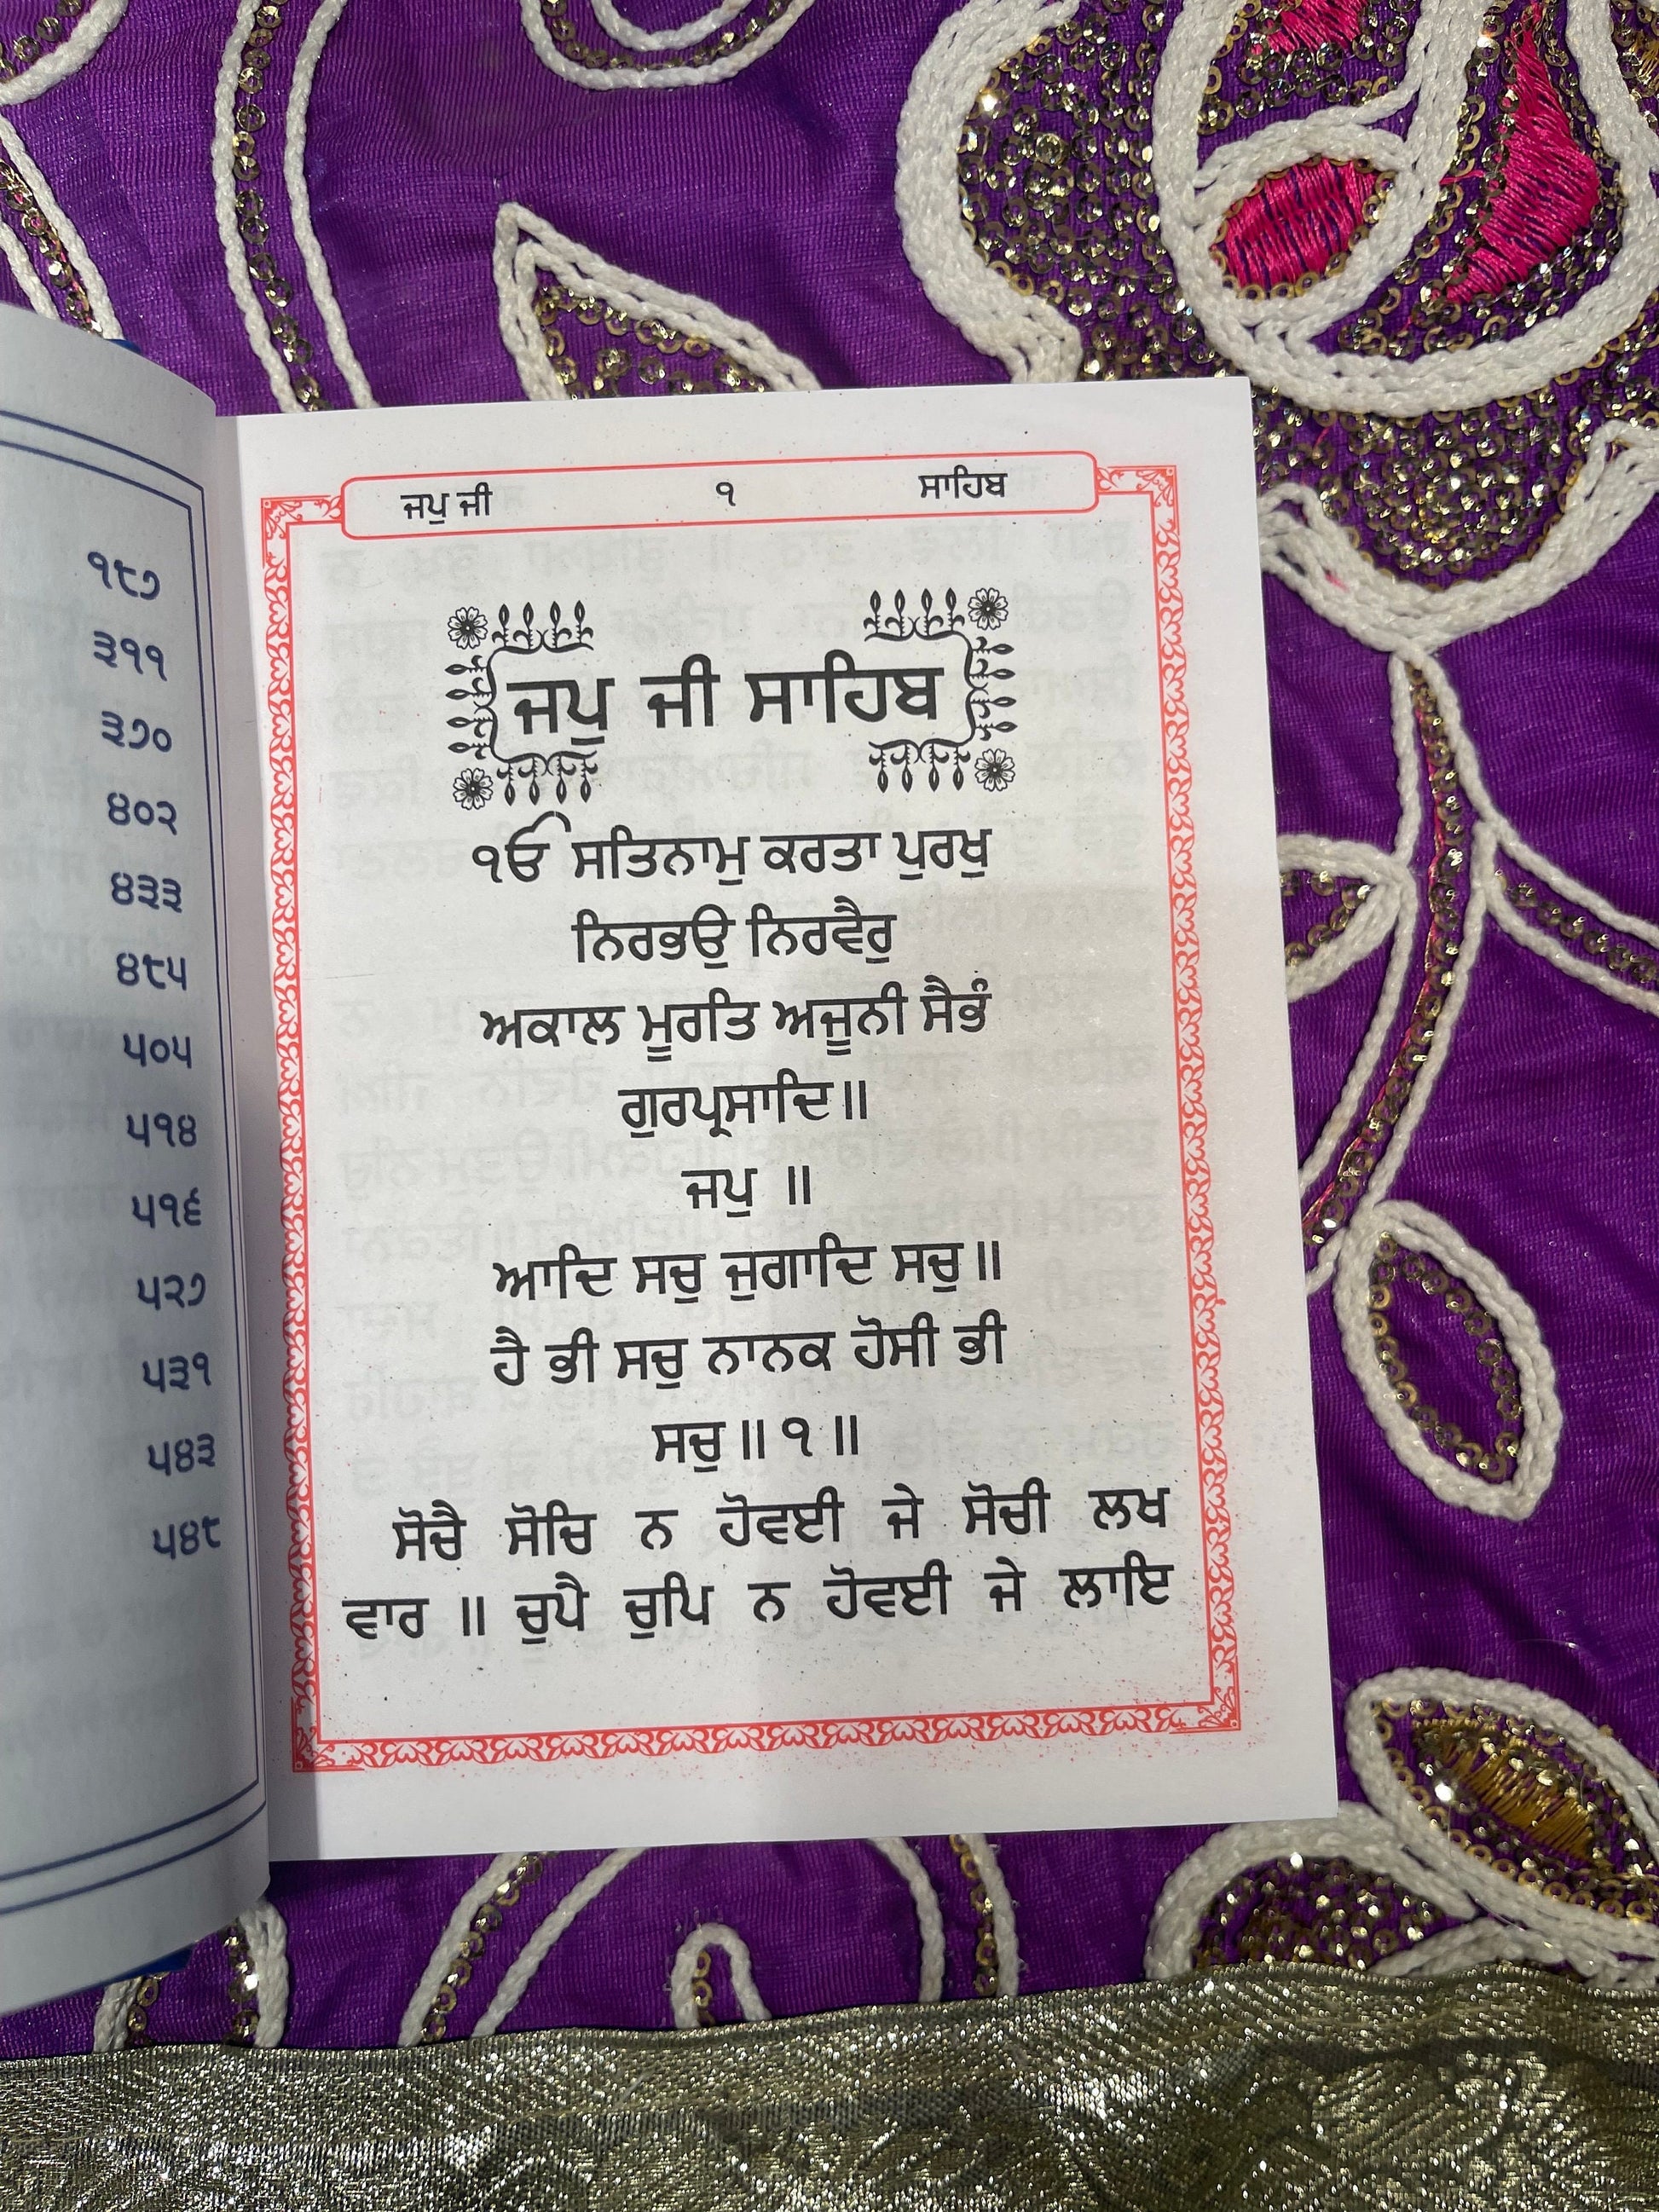 ੧੮੭
੩੧੧
੩੭੦
੪੦੨
੪੩੩
੪੮੫
੫੦੫
੫੧੪
੫੧੬
੫੨੭
੫੩੧
੫੪੩
੫੪੮
ਜਪੁ ਜੀ ੧ ਸਾਹਿਬ
ਜਪੁ ਜੀ ਸਾਹਿਬ
ੴ ਸਤਿਨਾਮੁ ਕਰਤਾ ਪੁਰਖੁ
ਨਿਰਭਉ ਨਿਰਵੈਰੁ
ਅਕਾਲ ਮੂਰਤਿ ਅਜੂਨੀ ਸੈਭੰ
ਗੁਰਪ੍ਰਸਾਦਿ॥
ਜਪੁ ॥
ਆਦਿ ਸਚੁ ਜੁਗਾਦਿ ਸਚੁ॥
ਹੈ ਭੀ ਸਚੁ ਨਾਨਕ ਹੋਸੀ ਭੀ
ਸਚੁ॥ ੧ ॥
ਸੋਚੈ ਸੋਚਿ ਨ ਹੋਵਈ ਜੇ ਸੋਚੀ ਲਖ
ਵਾਰ ॥ ਚੁਪੈ ਚੁਪਿ ਨ ਹੋਵਈ ਜੇ ਲਾਇ